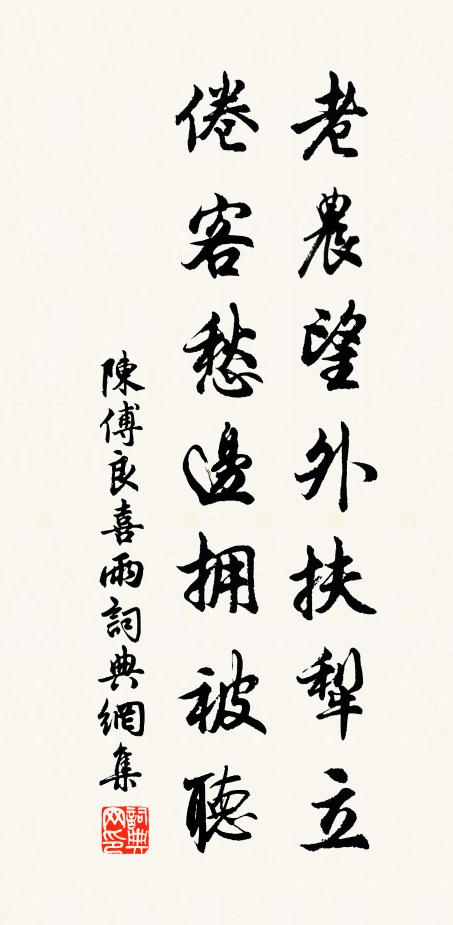 老農望外扶犁立
倦客愁邊拥被聽
陳傅良喜雨詞典網集
詞典网印